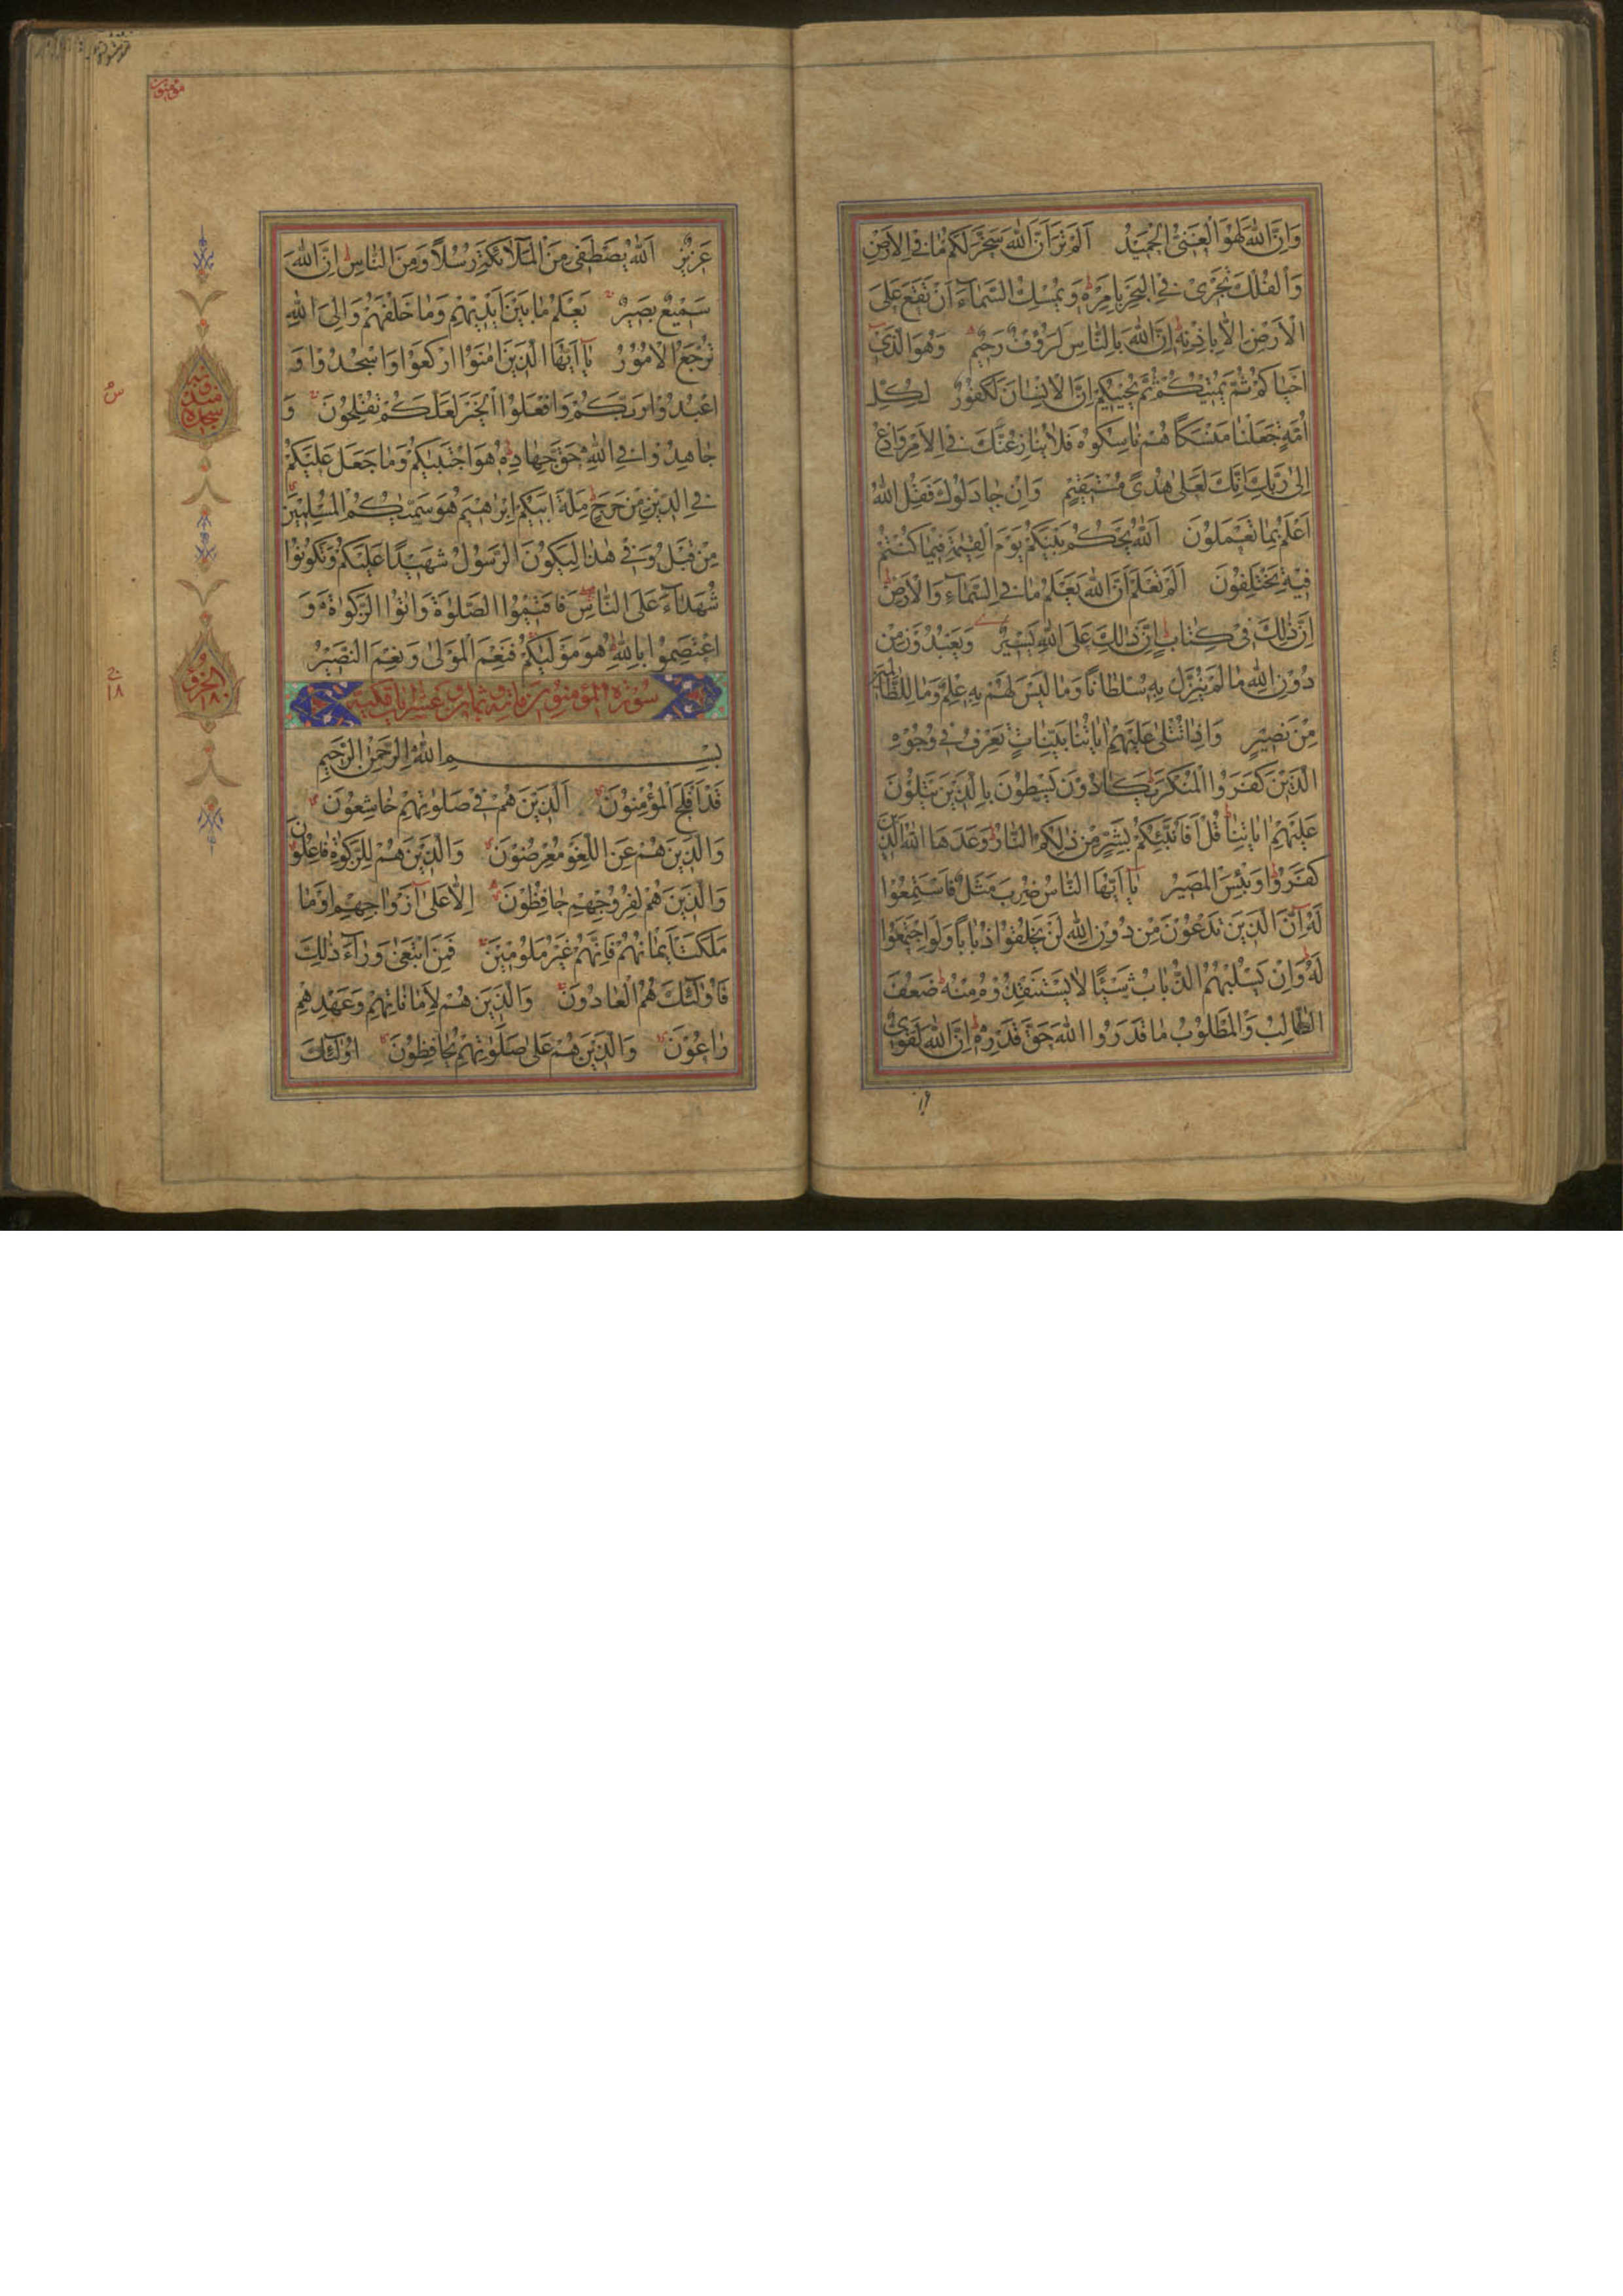 وَاِنَّ اللهَ لَهُوَ الْغَنِيُّ الْحَمِيْدُ اَلَمْ تَرَ اَنَّ اللهَ سَخَّرَ لَكُمْ مَا فِي الْاَرْضِ
وَالْفُلْكَ تَجْرِيْ فِي الْبَحْرِ بِاَمْرِهٖ وَيُمْسِكُ السَّمَآءَ اَنْ تَقَعَ عَلَى
الْاَرْضِ اِلَّا بِاِذْنِهٖ اِنَّ اللهَ بِالنَّاسِ لَرَؤُفٌ رَحِيْمٌ وَهُوَ الَّذِيْ
اَحْيَاكُمْ ثُمَّ يُمِيْتُكُمْ ثُمَّ يُحْيِيْكُمْ اِنَّ الْاِنْسَانَ لَكَفُوْرٌ لِكُلِّ
اُمَّةٍ جَعَلْنَا مَنْسَكًا هُمْ نَاسِكُوْهُ فَلَا يُنَازِعُنَّكَ فِي الْاَمْرِ وَادْعُ
اِلٰى رَبِّكَ اِنَّكَ لَعَلٰى هُدًى مُسْتَقِيْمٍ وَاِنْ جَادَلُوْكَ فَقُلِ اللهُ
اَعْلَمُ بِمَا تَعْمَلُوْنَ اَللهُ يَحْكُمُ بَيْنَكُمْ يَوْمَ الْقِيٰمَةِ فِيْمَا كُنْتُمْ
فِيْهِ تَخْتَلِفُوْنَ اَلَمْ تَعْلَمْ اَنَّ اللهَ يَعْلَمُ مَا فِي السَّمَآءِ وَالْاَرْضِ
اِنَّ ذٰلِكَ فِيْ كِتَابٍ اِنَّ ذٰلِكَ عَلَى اللهِ يَسِيْرٌ وَيَعْبُدُوْنَ مِنْ
دُوْنِ اللهِ مَا لَمْ يُنَزِّلْ بِهٖ سُلْطَانًا وَمَا لَيْسَ لَهُمْ بِهٖ عِلْمٌ وَمَا لِلظَّالِمِيْنَ
مِنْ نَصِيْرٍ وَاِذَا تُتْلٰى عَلَيْهِمْ اٰيَاتُنَا بَيِّنَاتٍ تَعْرِفُ فِيْ وُجُوْهِ
الَّذِيْنَ كَفَرُوا الْمُنْكَرَ يَكَادُوْنَ يَسْطُوْنَ بِالَّذِيْنَ يَتْلُوْنَ
عَلَيْهِمْ اٰيَاتِنَا قُلْ اَفَاُنَبِّئُكُمْ بِشَرٍّ مِنْ ذٰلِكُمُ النَّارُ وَعَدَهَا اللهُ الَّذِيْنَ
كَفَرُوْا وَبِئْسَ الْمَصِيْرُ يَا اَيُّهَا النَّاسُ ضُرِبَ مَثَلٌ فَاسْتَمِعُوْا
لَهٗ اِنَّ الَّذِيْنَ تَدْعُوْنَ مِنْ دُوْنِ اللهِ لَنْ يَخْلُقُوْا ذُبَابًا وَلَوِ اجْتَمَعُوْا
لَهٗ وَاِنْ يَسْلُبْهُمُ الذُّبَابُ شَيْئًا لَا يَسْتَنْقِذُوْهُ مِنْهُ ضَعُفَ
الطَّالِبُ وَالْمَطْلُوْبُ مَا قَدَرُوا اللهَ حَقَّ قَدْرِهٖ اِنَّ اللهَ لَقَوِيٌّ
مؤمنون
عَزِيْزٌ اَللهُ يَصْطَفِيْ مِنَ الْمَلَآئِكَةِ رُسُلًا وَمِنَ النَّاسِ اِنَّ اللهَ
سَمِيْعٌ بَصِيْرٌ يَعْلَمُ مَا بَيْنَ اَيْدِيْهِمْ وَمَا خَلْفَهُمْ وَاِلَى اللهِ
تُرْجَعُ الْاُمُوْرُ يَا اَيُّهَا الَّذِيْنَ اٰمَنُوا ارْكَعُوْا وَاسْجُدُوْا وَ
اعْبُدُوْا رَبَّكُمْ وَافْعَلُوا الْخَيْرَ لَعَلَّكُمْ تُفْلِحُوْنَ وَ
جَاهِدُوْا فِي اللهِ حَقَّ جِهَادِهٖ هُوَ اجْتَبٰيكُمْ وَمَا جَعَلَ عَلَيْكُمْ
فِي الدِّيْنِ مِنْ حَرَجٍ مِلَّةَ اَبِيْكُمْ اِبْرٰهِيْمَ هُوَ سَمّٰيكُمُ الْمُسْلِمِيْنَ
مِنْ قَبْلُ وَفِيْ هٰذَا لِيَكُوْنَ الرَّسُوْلُ شَهِيْدًا عَلَيْكُمْ وَتَكُوْنُوْا
شُهَدَآءَ عَلَى النَّاسِ فَاَقِيْمُوا الصَّلٰوةَ وَاٰتُوا الزَّكٰوةَ وَ
اعْتَصِمُوْا بِاللهِ هُوَ مَوْلٰيكُمْ فَنِعْمَ الْمَوْلٰى وَنِعْمَ النَّصِيْرُ
سورة المؤمنون مائة وثمان عشر اٰيات مكية
بِسْمِ اللهِ الرَّحْمٰنِ الرَّحِيْمِ
قَدْ اَفْلَحَ الْمُؤْمِنُوْنَ اَلَّذِيْنَ هُمْ فِيْ صَلٰوتِهِمْ خَاشِعُوْنَ
وَالَّذِيْنَ هُمْ عَنِ اللَّغْوِ مُعْرِضُوْنَ وَالَّذِيْنَ هُمْ لِلزَّكٰوةِ فَاعِلُوْنَ
وَالَّذِيْنَ هُمْ لِفُرُوْجِهِمْ حَافِظُوْنَ اِلَّا عَلٰى اَزْوَاجِهِمْ اَوْ مَا
مَلَكَتْ اَيْمَانُهُمْ فَاِنَّهُمْ غَيْرُ مَلُوْمِيْنَ فَمَنِ ابْتَغٰى وَرَآءَ ذٰلِكَ
فَاُولٰٓئِكَ هُمُ الْعَادُوْنَ وَالَّذِيْنَ هُمْ لِاَمَانَاتِهِمْ وَعَهْدِهِمْ
رَاعُوْنَ وَالَّذِيْنَ هُمْ عَلٰى صَلَوٰتِهِمْ يُحَافِظُوْنَ اُولٰٓئِكَ
الجزو
١٨
١٨